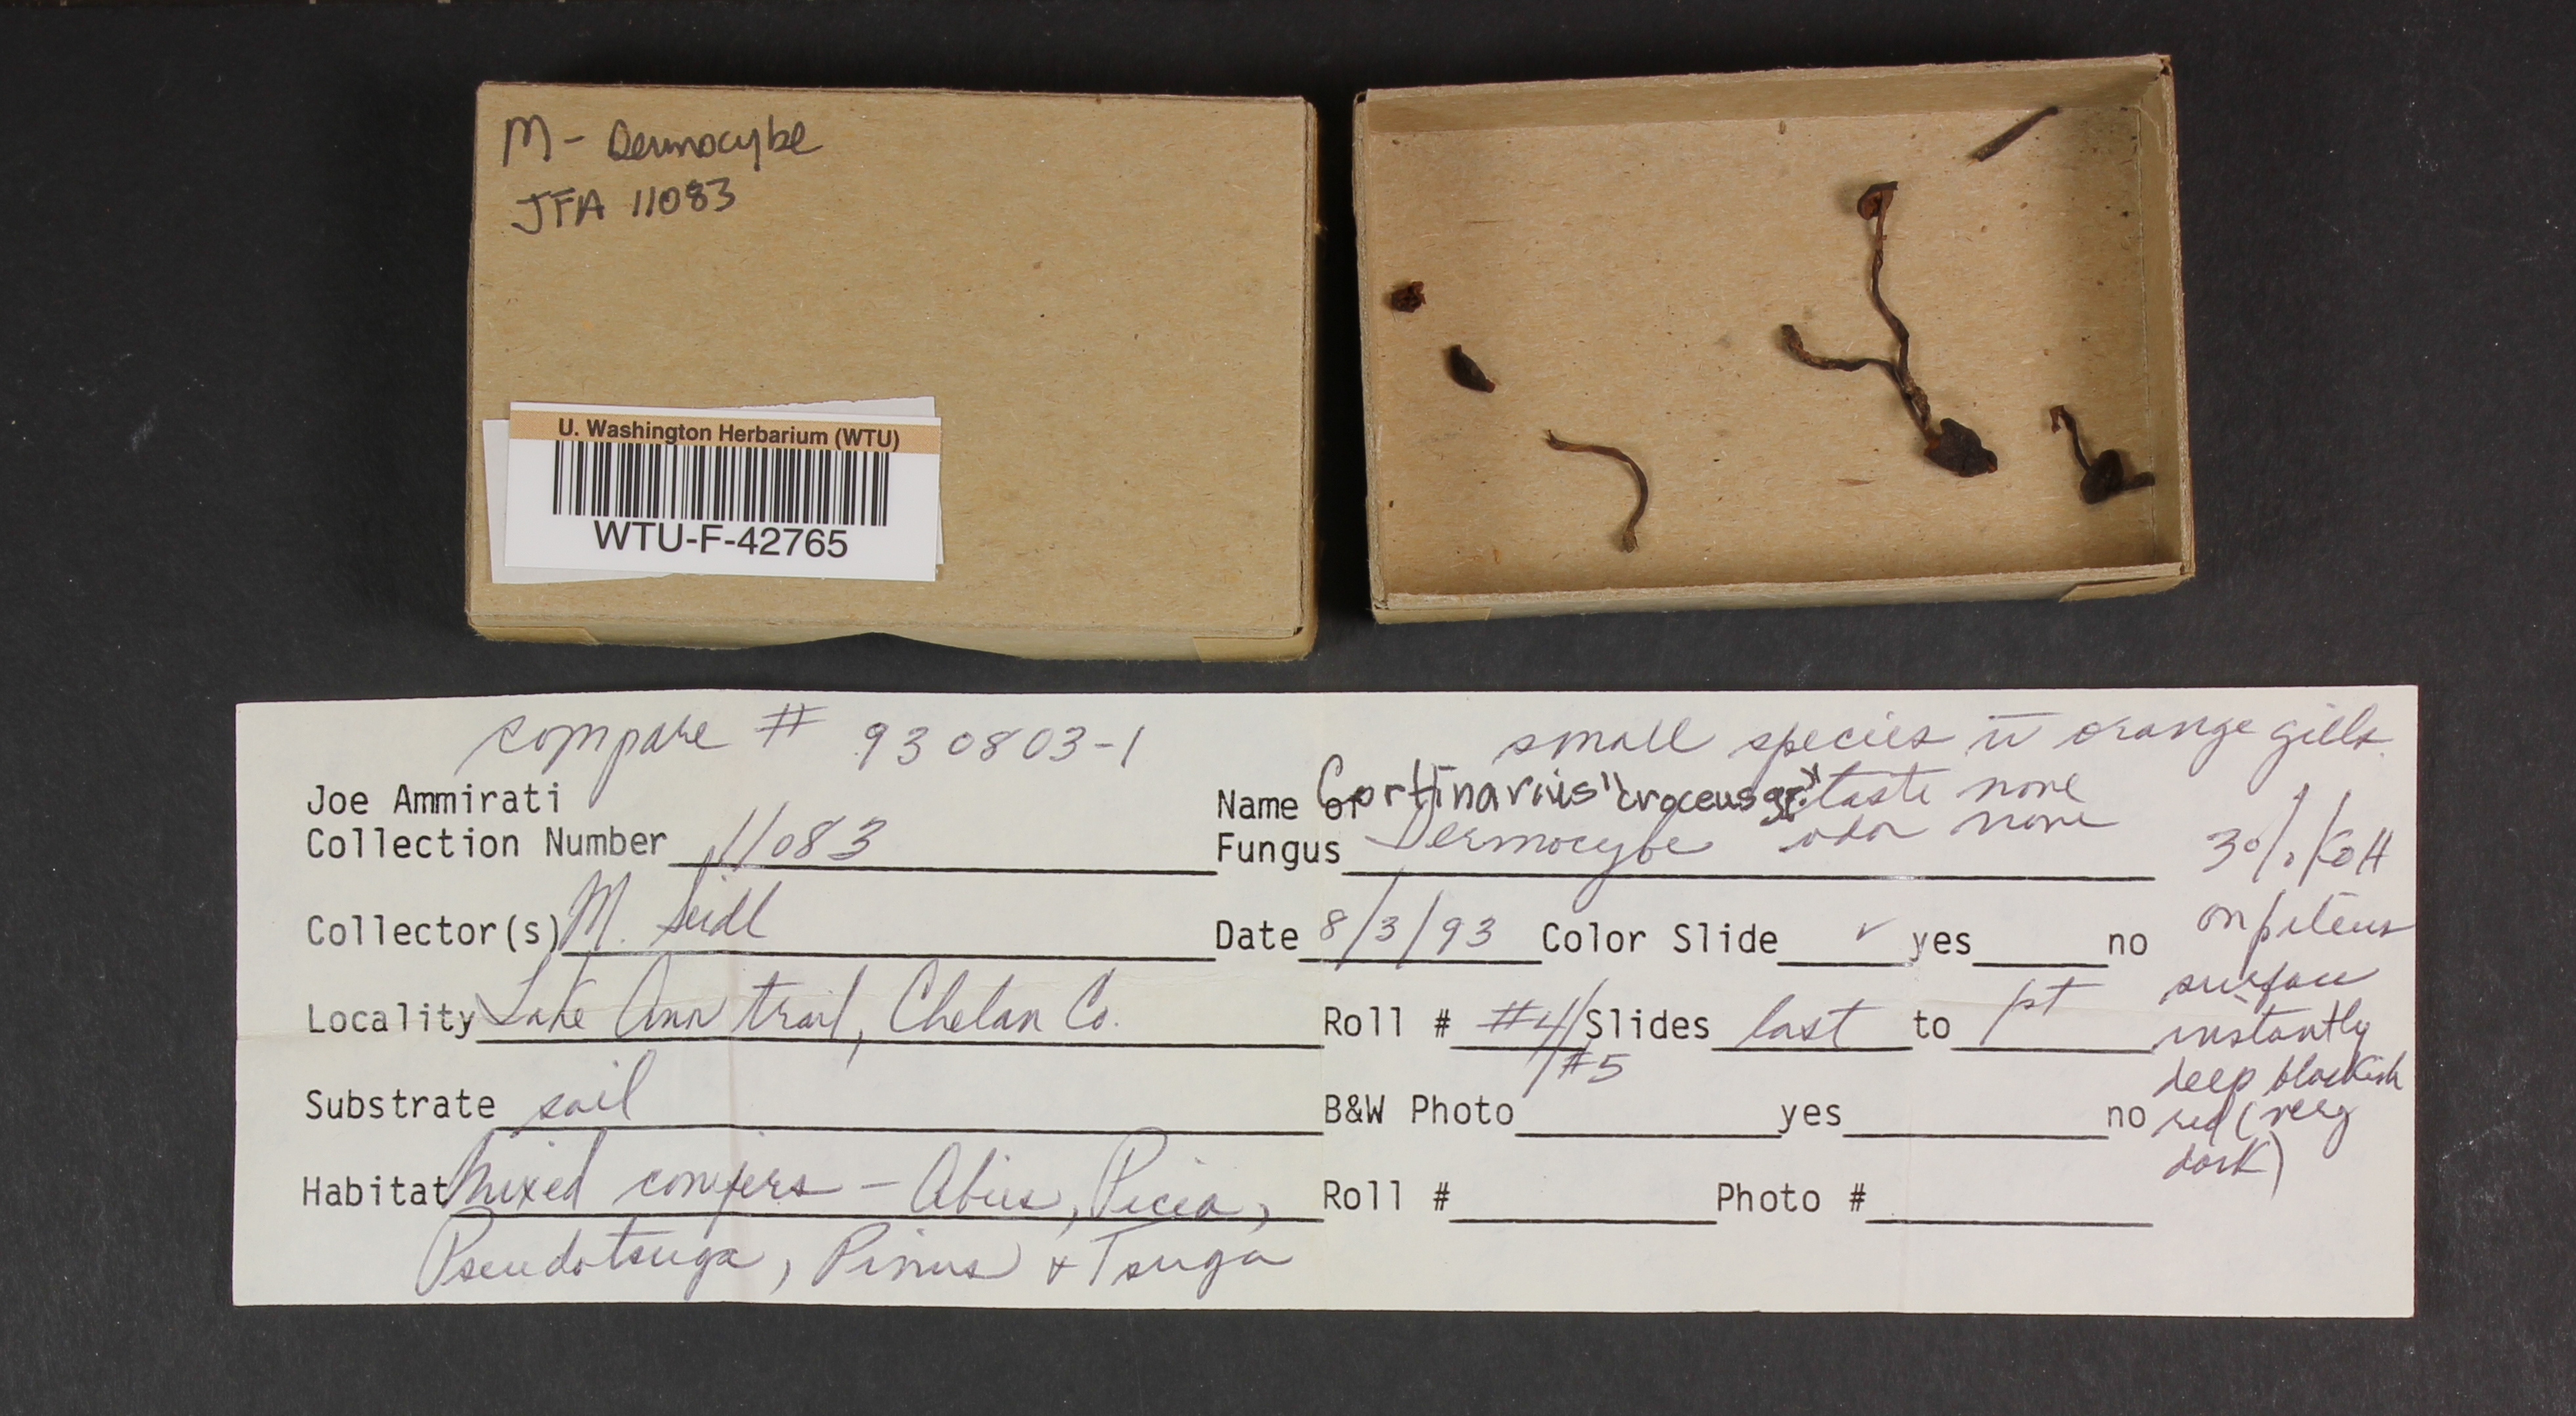 M - Dermocybe
JFA 11083
U. Washington Herbarium (WTU)
WTU-F-42765
compare # 930803-1
small species c̄ orange gills
Joe Ammirati
Collection Number 11083
Name of Cortinarius "croceus gr." taste none
Fungus Dermocybe odor none
3% KOH
on pileus
surface
instantly
deep blackish
red (very
dark)
Collector(s) M. Seidl
Date 8/3/93 Color Slide ✓ yes no
Locality Lake Ann trail, Chelan Co.
Roll # #4/#5 Slides last to 1st
Substrate soil
B&W Photo yes no
Habitat Mixed conifers - Abies, Picea,
Pseudotsuga, Pinus + Tsuga
Roll # Photo #